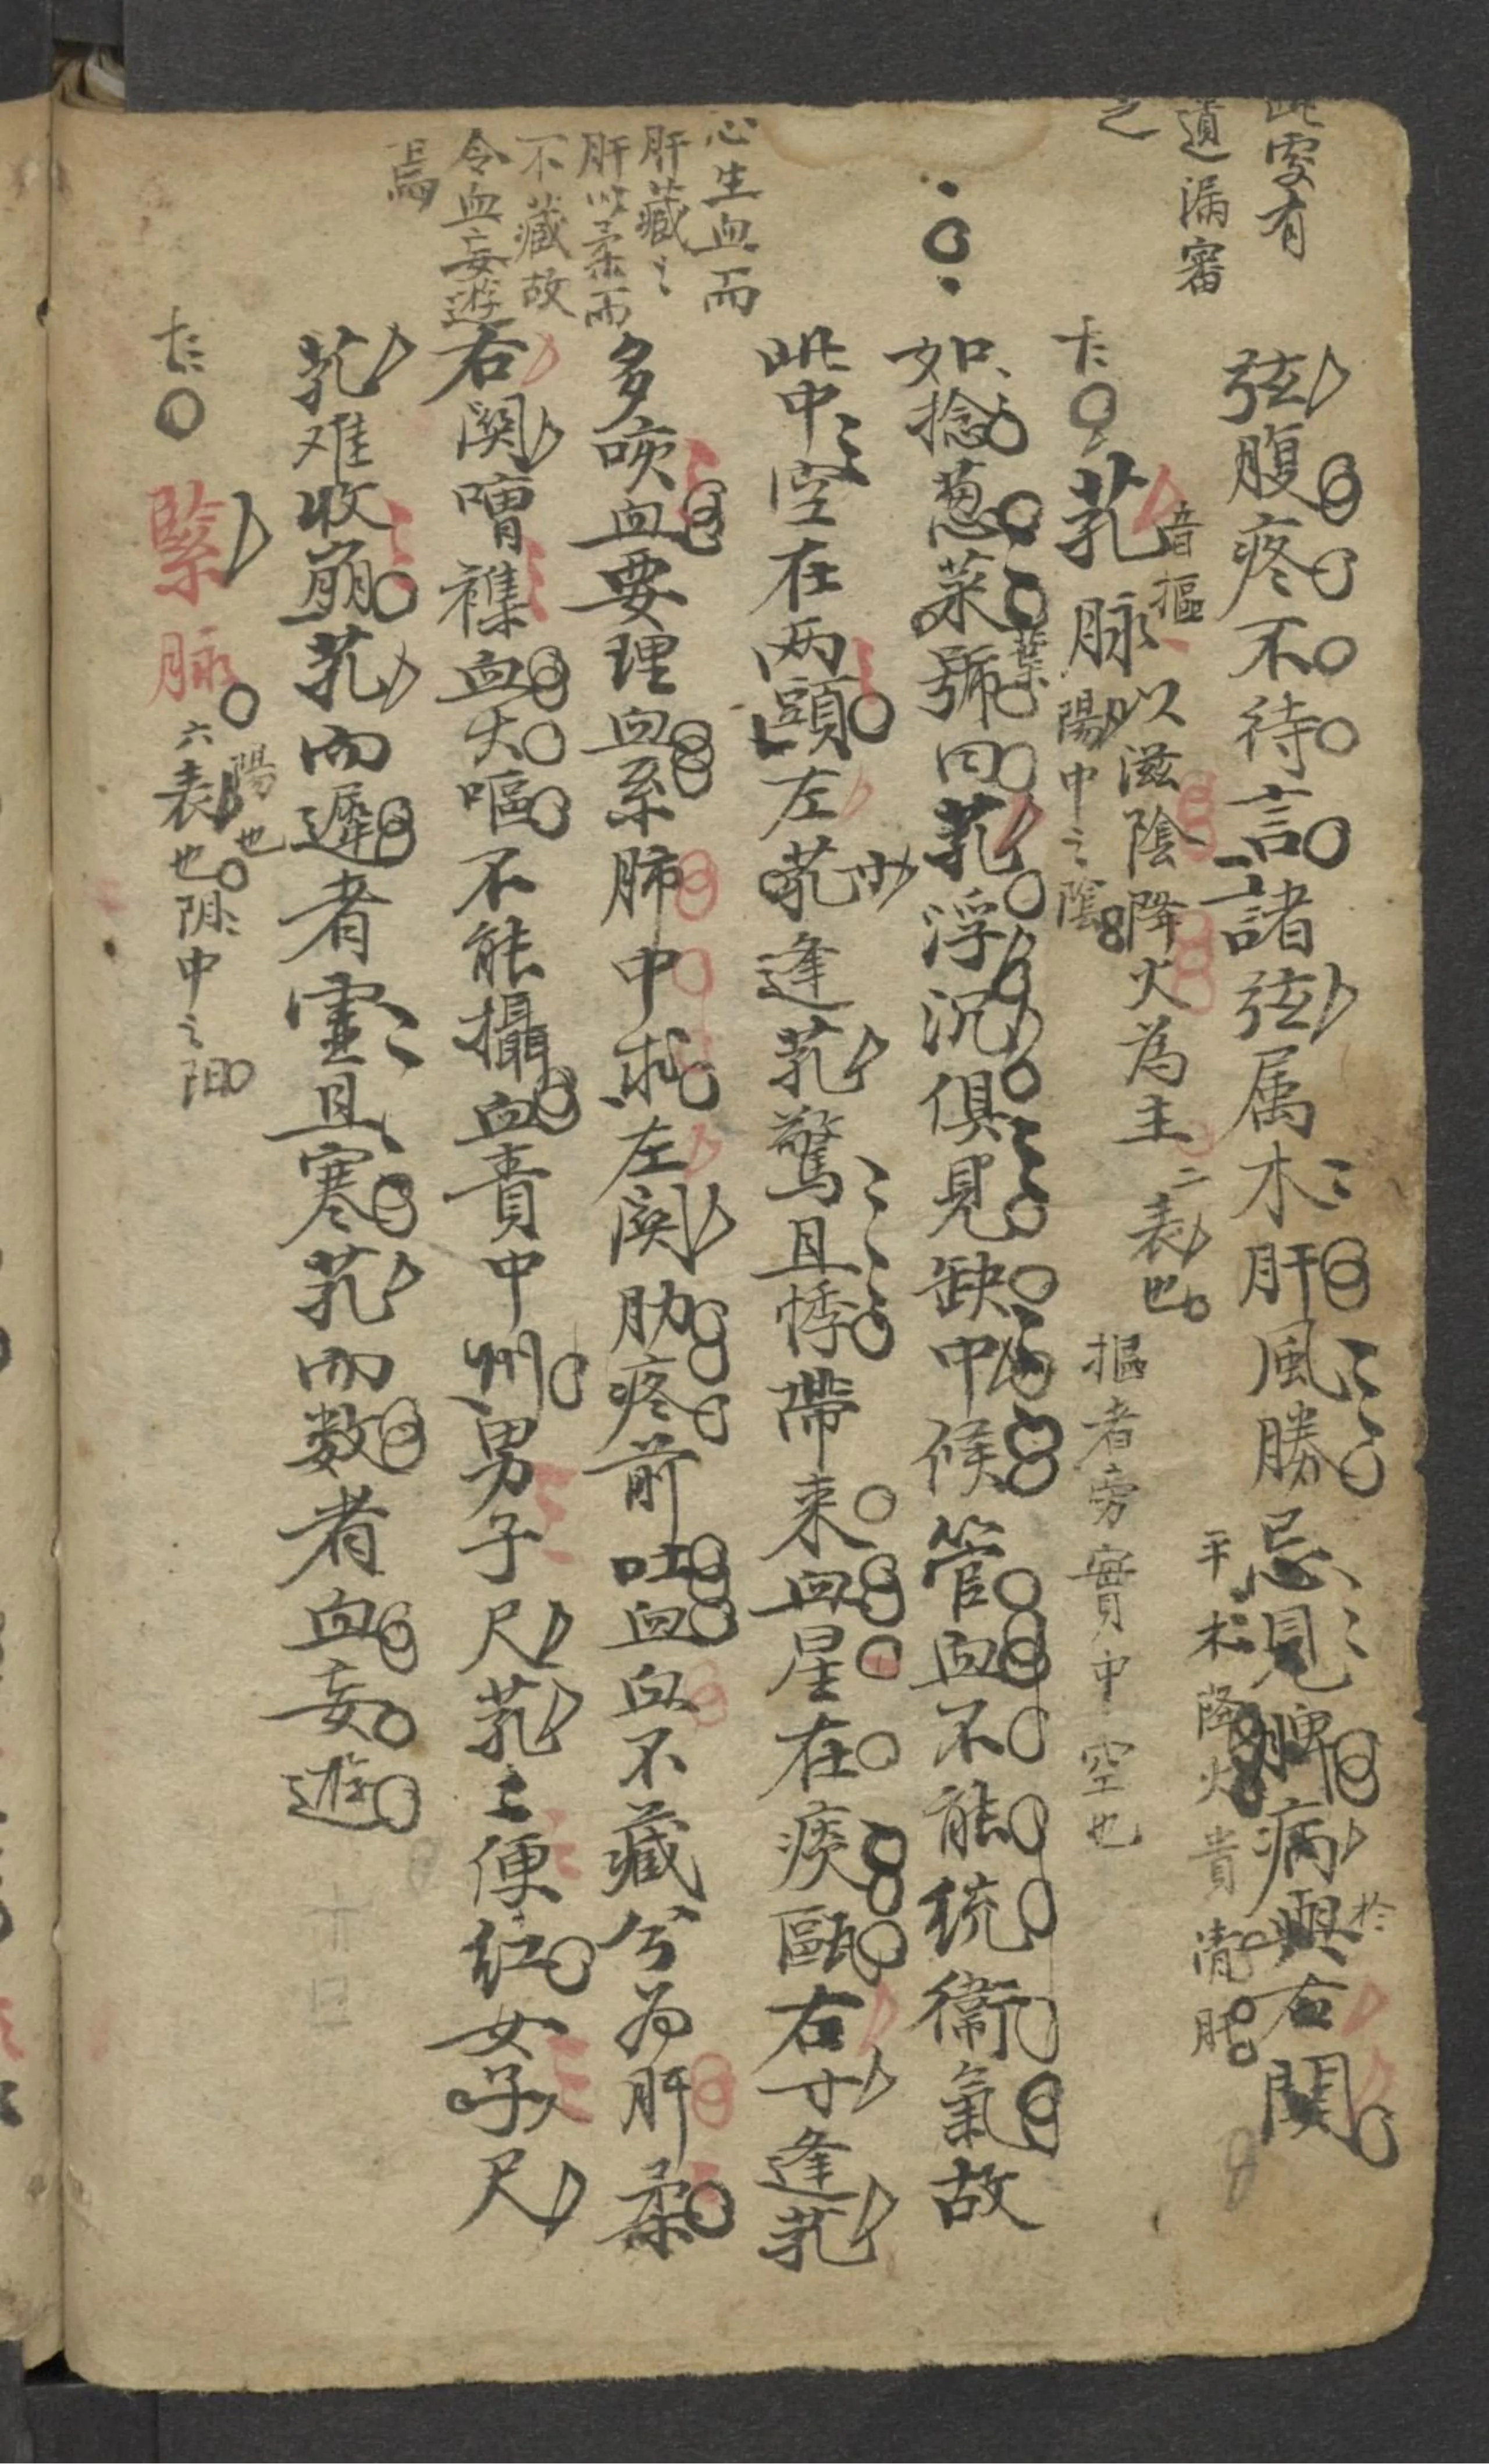 此處有
遺漏審
之
弦腹疼不待言諸弦属木肝風勝忌見脾病與右関
於
平木降火貴清肝
卞〇芤脉
音摳
以滋陰降火為主二表也
陽中之陰
摳者旁實中空也
如捻葱菜號曰芤浮沉俱見缺中候管血不能统衛氣故
葉
此中空在两頭左芤寸逢芤驚且悸帶来血星在痰甌右寸逢芤
心生血而
肝藏之
肝以柔而
不藏故
令血妄遊
焉
多咳血要理血系肺中求左関肋疼前吐血血不藏兮为肝柔
右関嘈襍血大嘔不能攝血責中州男子尺芤〻便红女子尺
芤难收崩芤而遲者虛且寒芤而数者血妄遊
卞〇緊脉
陽也
六表也阴中之阳